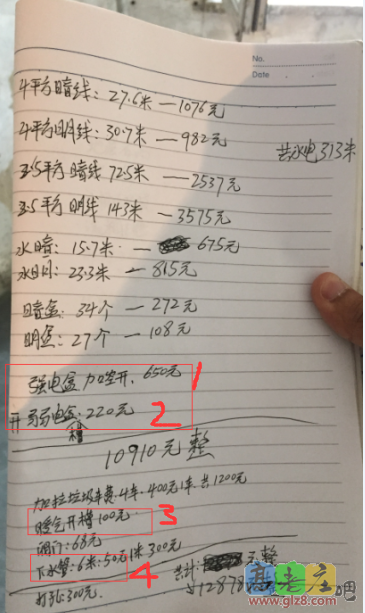 No.
Date
4平方暗线: 27.6米 — 1076元
4平方明线: 30.7米 — 982元
共水电313米
2.5平方暗线 72.5米 — 2537元
2.5平方明线 143米 — 3575元
水暗: 15.7米 — 675元
水明: 23.3米 — 815元
暗盒: 34个 — 272元
明盒: 27个 — 108元
强电盒加空开. 650元 1
开弱电盒: 220元 2
槽
10910元整
加拉垃圾车费: 4车: 400元1车. 共1200元
暖气开槽 100元 3
阀门: 68元
下水管: 6米: 50元1米 300元 4
共计: 元整
12878
打孔: 300元.
高老庄吧
www.glz8.com